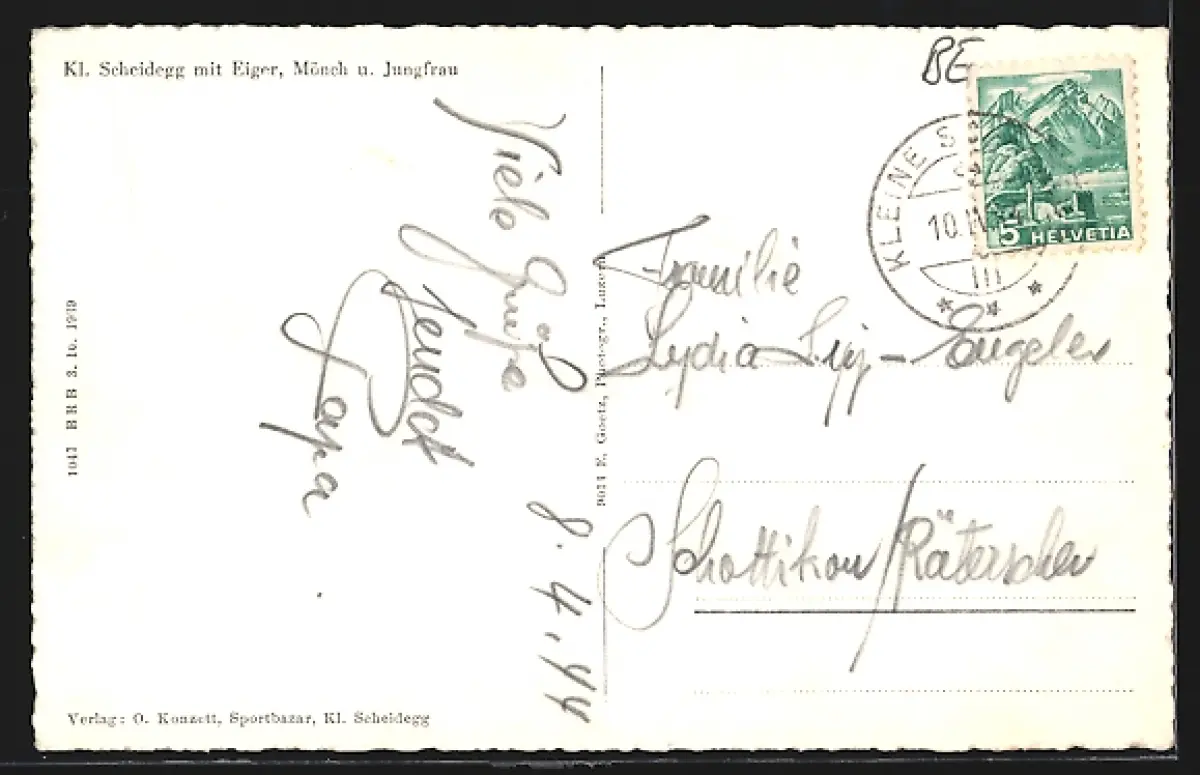 Kl. Scheidegg mit Eiger, Mönch u. Jungfrau
BE
KLEINE S
10.IV
5 HELVETIA
Viele Grüsse
sendet
Papa
8.4.44
Familie
Lydia - Engeler
Schottikon/Räterschen
1041 BRB 3. 10. 1939
9014 E. Goetz, Photogr., Luzern
Verlag: O. Konzett, Sportbazar, Kl. Scheidegg